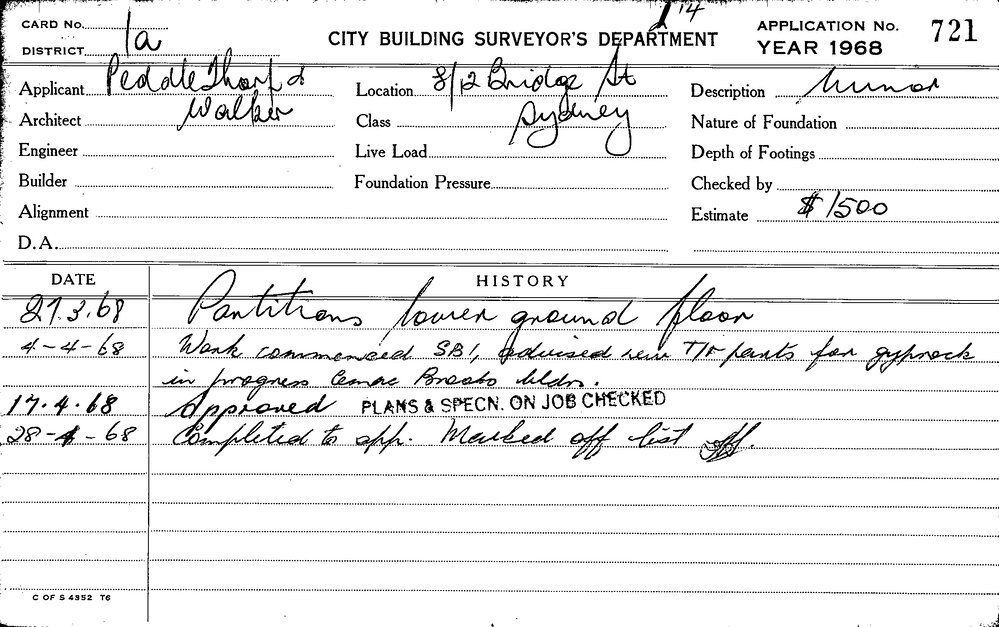 CARD No.
DISTRICT 1a
CITY BUILDING SURVEYOR'S DEPARTMENT
APPLICATION No. 721
YEAR 1968
Applicant Peddle Thorp &
Walker
Architect
Engineer
Builder
Alignment
D.A.
Location 8/12 Bridge St
Sydney
Class
Live Load
Foundation Pressure
Description Minor
Nature of Foundation
Depth of Footings
Checked by
Estimate $1500
DATE HISTORY
27.3.68 Partitions lower ground floor
4-4-68 Work commenced SB1, advised new T/F parts for gyprock
in progress bldrs.
17.4.68 Approved PLANS & SPECN. ON JOB CHECKED
28-4-68 Completed to app. Marked off list
C OF S 4352 T6